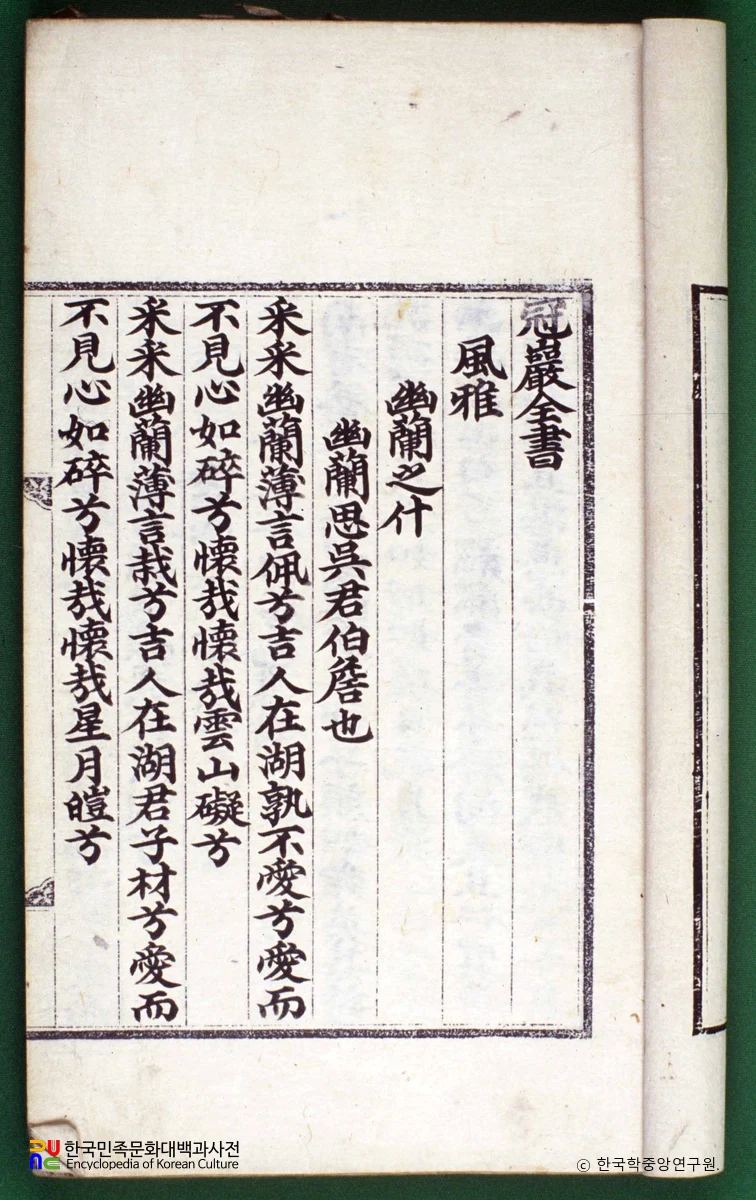 冠巖全書
風雅
幽蘭之什
幽蘭思吳君伯詹也
采采幽蘭薄言佩兮吉人在湖孰不愛兮愛而
不見心如碎兮懷哉懷哉雲山礙兮
采采幽蘭薄言栽兮吉人在湖君子材兮愛而
不見心如碎兮懷哉懷哉星月皚兮
한국민족문화대백과사전
Encyclopedia of Korean Culture
ⓒ 한국학중앙연구원